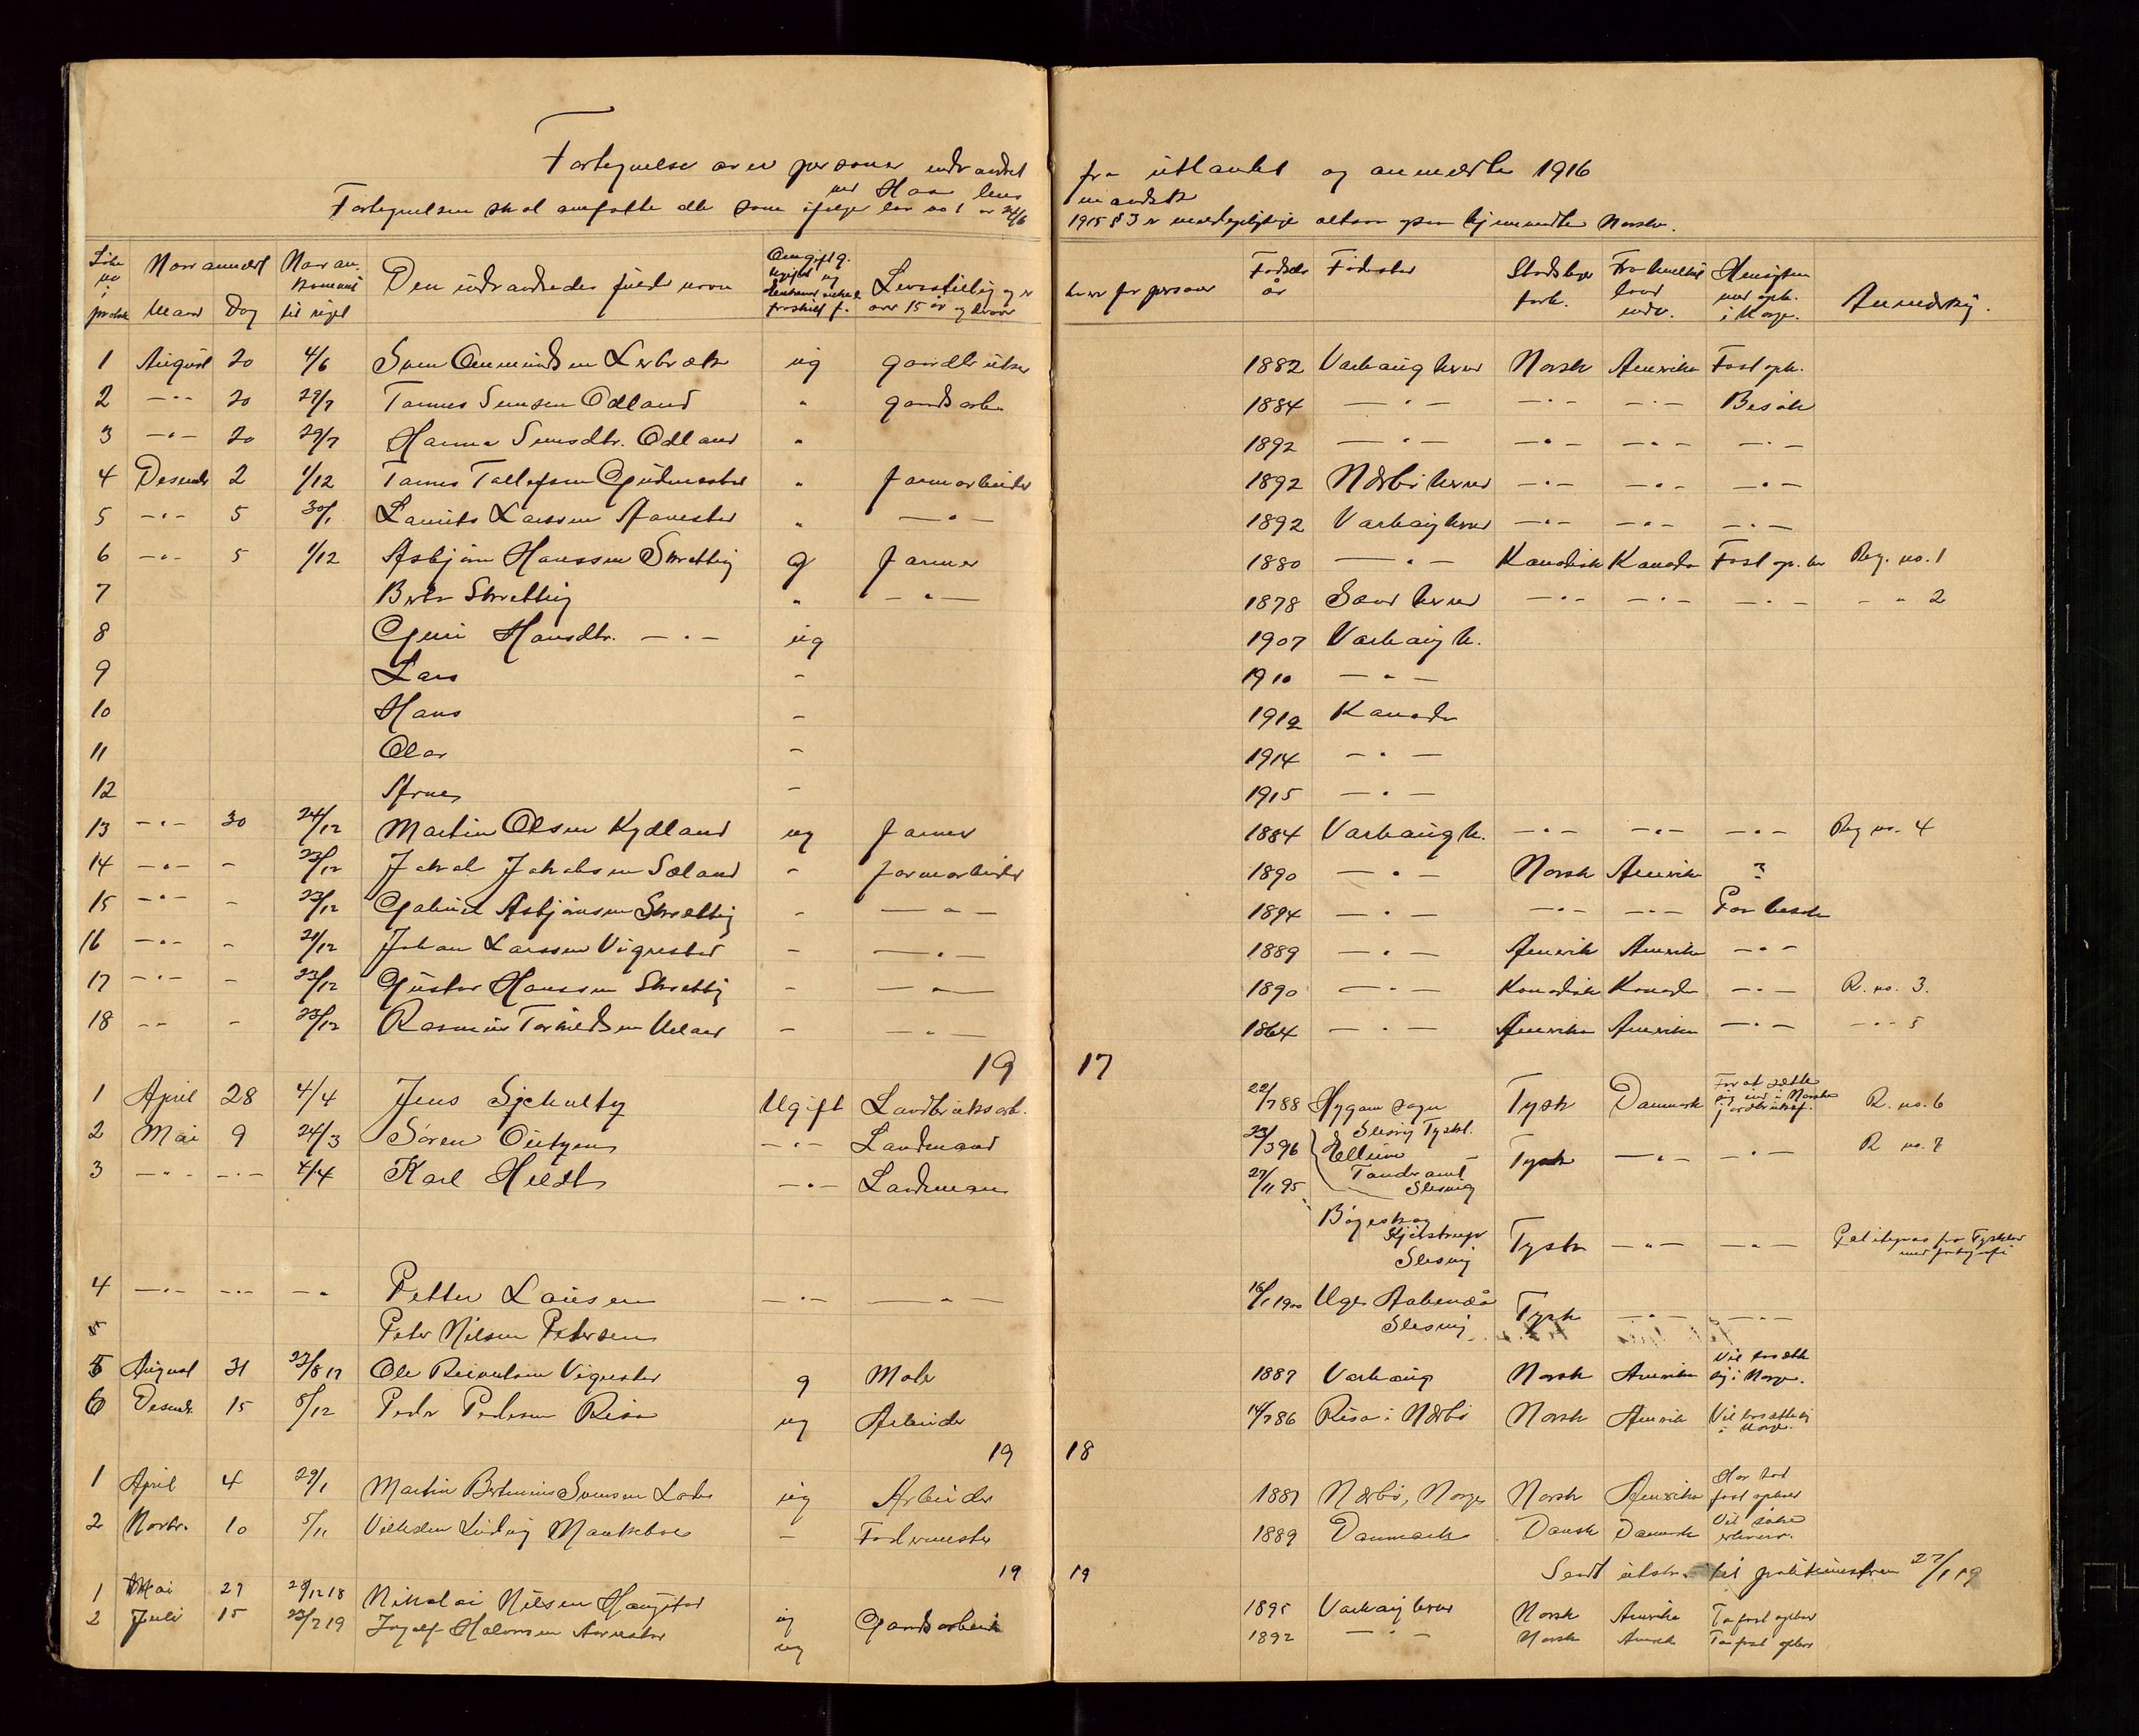 Fortegnelse over personer indvandret fra utlandet og anmeldte 1916
ved Haa lens mandsk
Fortegnelsen skal omfatte alle som ifølge lov no 1 av 24/6 1915 § 3 er meldepligtige altsaa ogsaa hjemvendte Norske.
Løbe no i protok Naar anmeldt Maaned Dag Naar ankommet til riget Den indvandredes fulde navn Om gift g. ugift ug fraskilt f. Levestilling og er over 15 år og derover for personer Fødsels år Fødested Statsborgerforh. Fra hvilket land indv. Hensigten med oph. i Norge. Anmerkng.
1 August 20 4/6 Sven Ommundsen Lerbræk ug gardbruker 1882 Varhaug herred Norsk Amerika Fast oph.
2 —"— 20 29/7 Tønnes Simsen Odland " gardsarb. 1884 —"— —"— —"— Besøk
3 —"— 20 29/7 Hanna Simsdtr. Odland " 1892 —"— —"— —"— —"—
4 Desembr 2 1/12 Tønnes Tollefsen Gudmestad " farmarbeider 1892 Nærbø herred —"— —"— —"—
5 —"— 5 30/1 Laurits Larssen Stavestad " —"— 1892 Varhaug herred —"— —"— —"—
6 —"— 5 1/12 Asbjørn Hanssen Skretting g farmer 1880 —"— Kanadisk Kanada Fast op.h. Reg. no. 1
7 Berta Skretting " —"— 1878 Sand herred —"— —"— —"— —"— 2
8 Guri Hansdtr. —"— ug 1907 Varhaug h.
9 Lars - 1910 —"—
10 Hans - 1912 Kanada
11 Olav - 1914 —"—
12 Arne - 1915 —"—
13 —"— 30 24/12 Martin Olsen Kydland ug farmer 1884 Varhaug h. —"— —"— —"— Reg no. 4
14 —"— - 23/12 Jakob Jakobsen Søland - farmarbeider 1890 —"— Norsk Amerika ?
15 —"— - 23/12 Gabriel Asbjørnsen Skretting - —"— 1894 —"— —"— —"— For besøk
16 —"— - 21/12 Johan Larssen Vigrestad - —"— 1889 —"— Amerik Amerika —"—
17 —"— - 23/12 Gustav Hanssen Skretting - —"— 1890 —"— Kanadisk Kanada —"— R. no. 3.
18 —"— - 23/12 Rasmus Torkildsen Ueland - —"— 1864 —"— Amerika Amerika —"— —"— 5
19 17
1 April 28 4/4 Jens Sjchultz Ugift Landbruksarb. 22/7 88 Hygum sogn Slesvig Tyskl. Tysk Danmark For at sætte sig ind i Norske jordbruksf. R. no. 6
2 Mai 9 24/3 Søren Outzen —"— Landmand 23/3 96 Ellum Tønder amt Slesvig Tysk —"— —"— R no. 7
3 —"— —"— 4/4 Karl Heldt —"— Landman 27/11 95 Bøgeskog Kjelstrup Slesvig Tysk —"— —"—
4 —"— —"— —"— Petter Lausen —"— —"— 16/1 1900 Uge Aabenraa Slesvig Tysk —"— —"—
5 Peter Nilsen Petersen
5 August 31 23/8 17 Ole Reinertsen Vigrestad g Maler 1887 Varhaug Norsk Amerika Vil bosætte sig i Norge.
6 Desembr. 15 5/12 Peder Pedersen Risa ug Arbeider 14/7 86 Risa i Nærbø Norsk Amerik Vil bosætte sig i Norge.
19 18
1 April 4 29/1 Martin Bertinius Svensen Lode ug Arbeider 1887 Nærbø, Norge Norsk Amerika Har tat fast ophold
2 Novbr. 10 5/11 Vilhelm Ludvig - Fodermester 1889 Danmark Dansk Danmark Vil søke erhverv.
19 19
Sendt utskr. til politimesteren 27/1 19
1 Mai 27 28/12 18 Nikolai Nilsen Haugstad ug Gardsarbeid 1895 Varhaug herred Norsk Amerika Ta fast ophold
2 Juli 15 23/7 19 Ingolf Halvorsen ug 1892 —"— Norsk Amerik Ta fast ophold